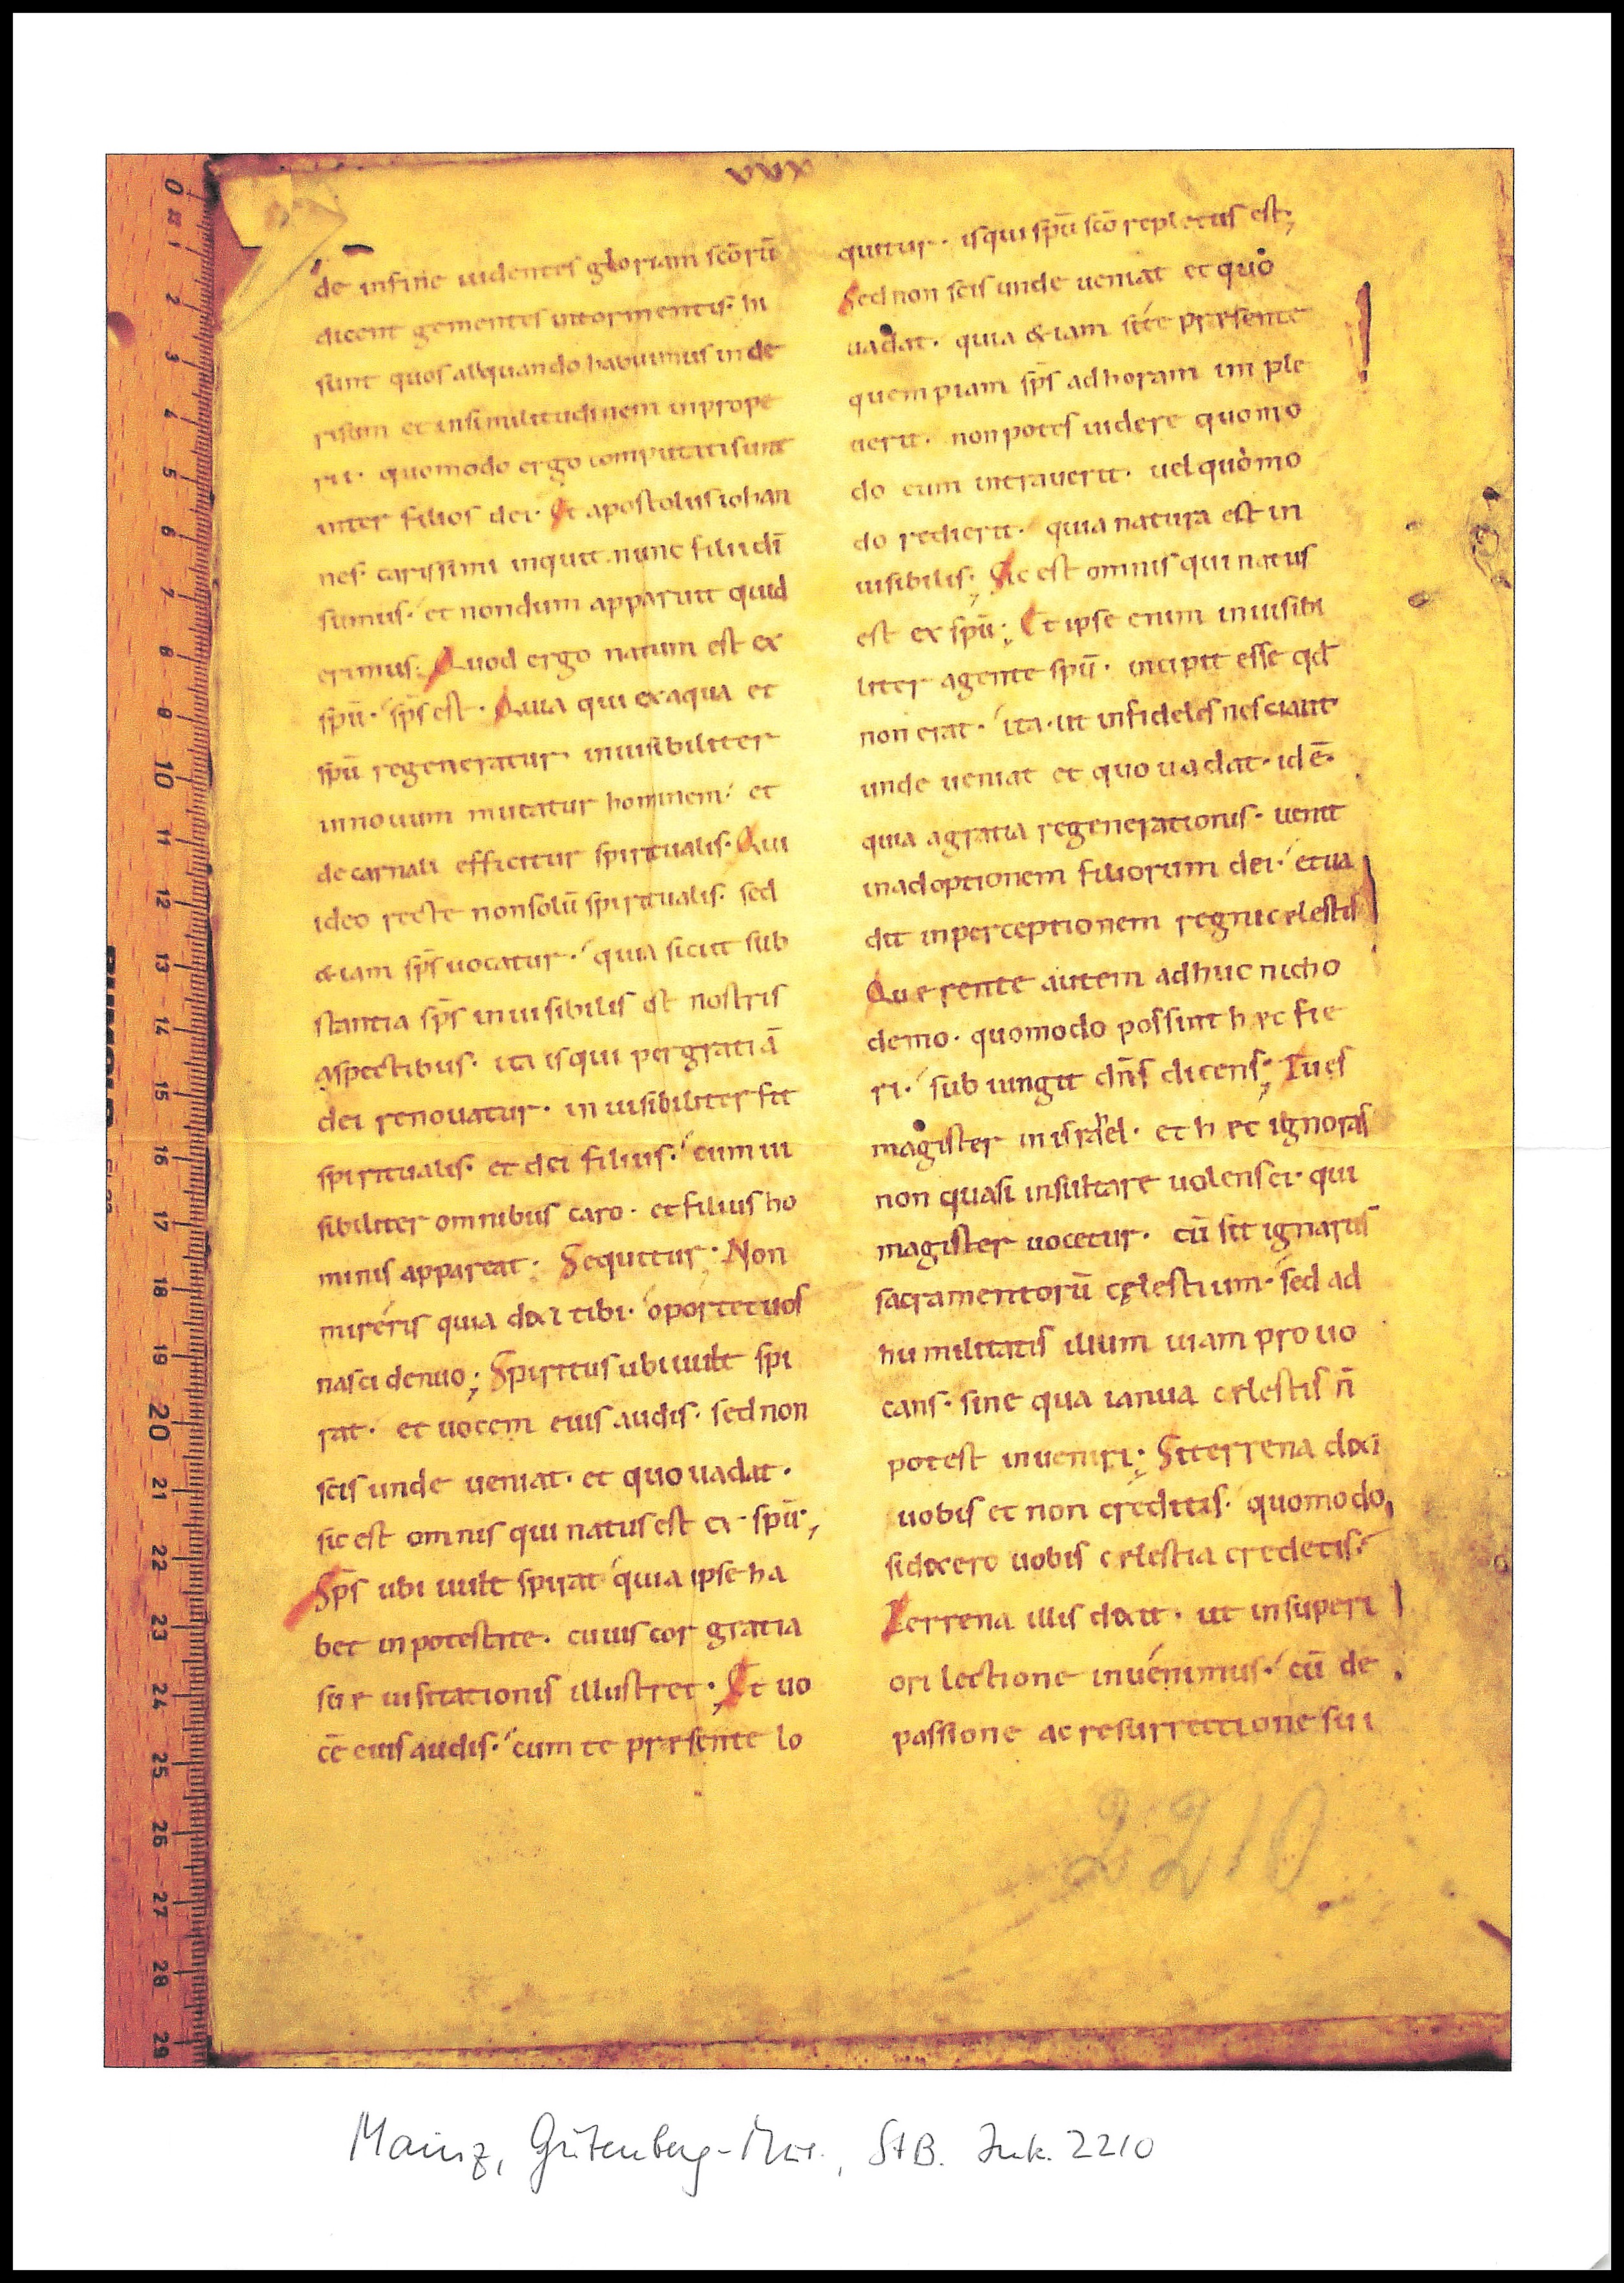 xvv
de in fine uidentes gloriam scōrū
dicent gementes in tormentis· hi
sunt quos aliquando habuimus in de
risum et in similitudinem inprope
rii· quomodo ergo computati sunt
inter filios dei· Et apostolus iohan
nes· carissimi inquit nunc filii dī
sumus· et nondum apparuit quid
erimus· Quod ergo natum est ex
spū· sp̄s est· Quia qui ex aqua et
spū regeneratur inuisibiliter
in nouum mutatur hominem· et
de carnali efficitur spiritualis· Qui
ideo recte non solū spiritualis· sed
&iam sp̄s uocatur· quia sicut sub
stantia sp̄s inuisibilis est nostris
aspectibus· ita is qui per gratiā
dei renouatur· inuisibiliter fit
spiritualis· et dei filius· cum ui
sibiliter omnibus caro· et filius ho
minis appareat· Sequitur· Non
mireris quia dixi tibi· oportet uos
nasci denuo; Spiritus ubi uult spi
rat· et uocem eius audis· sed non
scis unde ueniat· et quo uadat·
sic est omnis qui natus est ex spū;
Sp̄s ubi uult spirat quia ipse ha
bet in potestate· cuius cor gratia
suæ uisitationis illustret· Et uo
cē eius audis· cum te præsente lo
quitur· is qui spū scō repletus est;
Sed non scis unde ueniat et quo
uadat· quia &iam si te præsente
quempiam sp̄s ad horam imple
uerit· non potes uidere quomo
do eum intrauerit· uel quomo
do redierit· quia natura est in
uisibilis; Sic est omnis qui natus
est ex spū; Et ipse enim inuisibi
liter agente spū· incipit esse qđ
non erat· ita ut infideles nesciant
unde ueniat et quo uadat· id ē·
quia a gratia regenerationis· uenit
in adoptionem filiorum dei· et ua
dit in perceptionem regni cælestis
Quærente autem adhuc nicho
demo· quomodo possint hæc fie
ri· subiungit dn̄s dicens; Tu es
magister in israhel· et hæc ignoras
non quasi insultare uolens ei· qui
magister uocetur· cū sit ignarus
sacramentorū cęlestium· sed ad
humilitatis illum uiam prouo
cans· sine qua ianua cælestis n̄
potest inueniri; Si terrena dixi
uobis et non creditis· quomodo,
si dixero uobis cælestia credetis·
Terrena illis dixit· ut in superi
ori lectione inuenimus· cū de
passione ac resurrectione sui
2210
Mainz, Gutenberg-Mus., StB. Ink. 2210
0 1 2 3 4 5 6 7 8 9 10 11 12 13 14 15 16 17 18 19 20 21 22 23 24 25 26 27 28 29